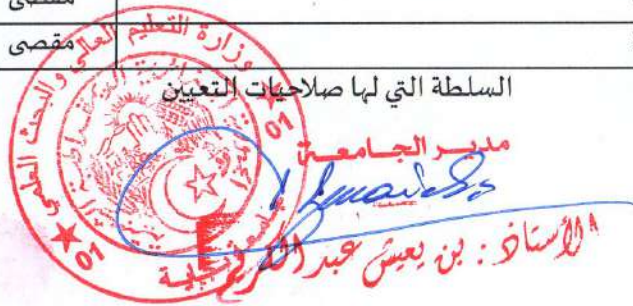 مقصى
مقصى
السلطة التي لها صلاحيات التعيين
وزارة التعليم العالي والبحث العلمي
01
01
مدير الجامعة
الأستاذ : بن يعيش عبد الكريم